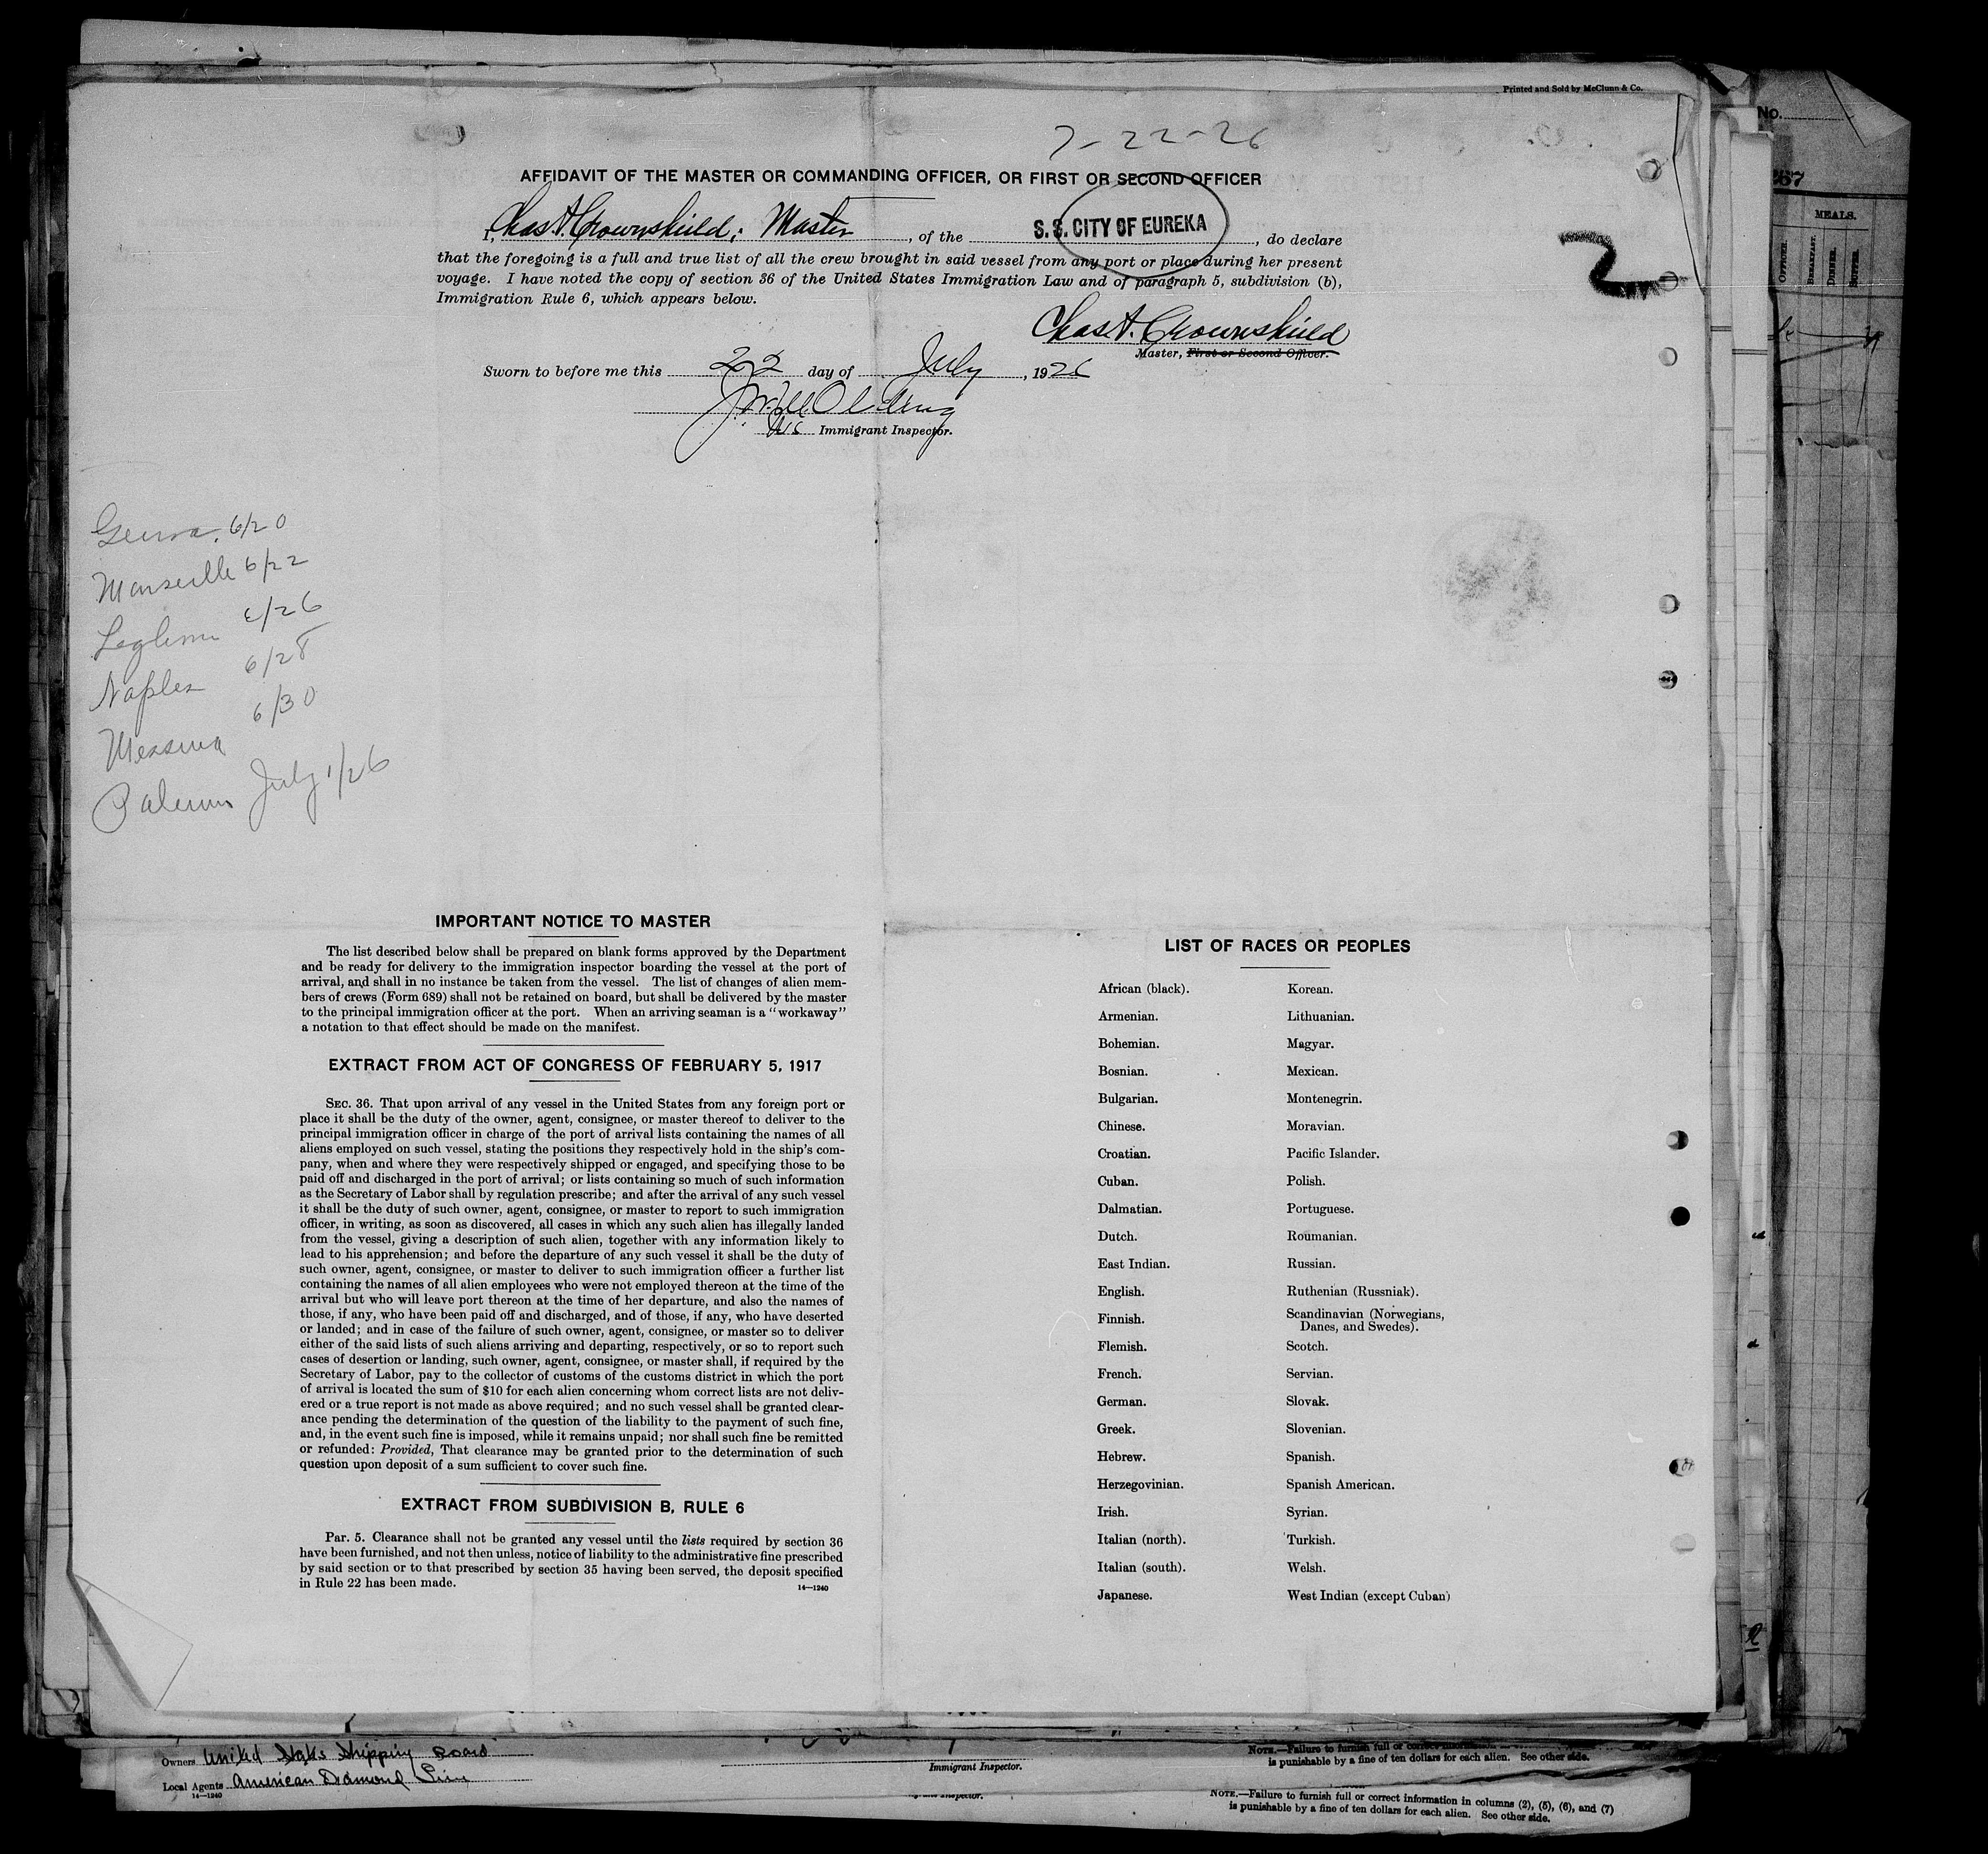 Printed and Sold by McClunn & Co.
No.
7-22-26
AFFIDAVIT OF THE MASTER OR COMMANDING OFFICER, OR FIRST OR SECOND OFFICER
267
MEALS.
OFFICER.
BREAKFAST.
DINNER.
SUPPER.
I, Chas. A. Crownshield; Master, of the S. S. CITY OF EUREKA, do declare
that the foregoing is a full and true list of all the crew brought in said vessel from any port or place during her present
voyage. I have noted the copy of section 36 of the United States Immigration Law and of paragraph 5, subdivision (b),
Immigration Rule 6, which appears below.
2
Chas A. Crownshield
Master, First or Second Officer.
Sworn to before me this 22 day of July, 1926
Immigrant Inspector.
Genoa. 6/20
Marseille 6/22
Leghorn 6/26
Naples 6/28
Messina 6/30
Palermo July 1/26
IMPORTANT NOTICE TO MASTER
The list described below shall be prepared on blank forms approved by the Department
and be ready for delivery to the immigration inspector boarding the vessel at the port of
arrival, and shall in no instance be taken from the vessel. The list of changes of alien mem-
bers of crews (Form 689) shall not be retained on board, but shall be delivered by the master
to the principal immigration officer at the port. When an arriving seaman is a "workaway"
a notation to that effect should be made on the manifest.
EXTRACT FROM ACT OF CONGRESS OF FEBRUARY 5, 1917
SEC. 36. That upon arrival of any vessel in the United States from any foreign port or
place it shall be the duty of the owner, agent, consignee, or master thereof to deliver to the
principal immigration officer in charge of the port of arrival lists containing the names of all
aliens employed on such vessel, stating the positions they respectively hold in the ship's com-
pany, when and where they were respectively shipped or engaged, and specifying those to be
paid off and discharged in the port of arrival; or lists containing so much of such information
as the Secretary of Labor shall by regulation prescribe; and after the arrival of any such vessel
it shall be the duty of such owner, agent, consignee, or master to report to such immigration
officer, in writing, as soon as discovered, all cases in which any such alien has illegally landed
from the vessel, giving a description of such alien, together with any information likely to
lead to his apprehension; and before the departure of any such vessel it shall be the duty of
such owner, agent, consignee, or master to deliver to such immigration officer a further list
containing the names of all alien employees who were not employed thereon at the time of the
arrival but who will leave port thereon at the time of her departure, and also the names of
those, if any, who have been paid off and discharged, and of those, if any, who have deserted
or landed; and in case of the failure of such owner, agent, consignee, or master so to deliver
either of the said lists of such aliens arriving and departing, respectively, or so to report such
cases of desertion or landing, such owner, agent, consignee, or master shall, if required by the
Secretary of Labor, pay to the collector of customs of the customs district in which the port
of arrival is located the sum of $10 for each alien concerning whom correct lists are not deliv-
ered or a true report is not made as above required; and no such vessel shall be granted clear-
ance pending the determination of the question of the liability to the payment of such fine,
and, in the event such fine is imposed, while it remains unpaid; nor shall such fine be remitted
or refunded: Provided, That clearance may be granted prior to the determination of such
question upon deposit of a sum sufficient to cover such fine.
EXTRACT FROM SUBDIVISION B, RULE 6
Par. 5. Clearance shall not be granted any vessel until the lists required by section 36
have been furnished, and not then unless, notice of liability to the administrative fine prescribed
by said section or to that prescribed by section 35 having been served, the deposit specified
in Rule 22 has been made.
14—1240
LIST OF RACES OR PEOPLES
African (black).
Armenian.
Bohemian.
Bosnian.
Bulgarian.
Chinese.
Croatian.
Cuban.
Dalmatian.
Dutch.
East Indian.
English.
Finnish.
Flemish.
French.
German.
Greek.
Hebrew.
Herzegovinian.
Irish.
Italian (north).
Italian (south).
Japanese.
Korean.
Lithuanian.
Magyar.
Mexican.
Montenegrin.
Moravian.
Pacific Islander.
Polish.
Portuguese.
Roumanian.
Russian.
Ruthenian (Russniak).
Scandinavian (Norwegians,
Danes, and Swedes).
Scotch.
Servian.
Slovak.
Slovenian.
Spanish.
Spanish American.
Syrian.
Turkish.
Welsh.
West Indian (except Cuban)
Owners United States Shipping Board
Local Agents American Diamond Line
14—1240
Immigrant Inspector.
NOTE.—Failure to furnish full or correct information
is punishable by a fine of ten dollars for each alien. See other side.
Inspector.
NOTE.—Failure to furnish full or correct information in columns (2), (5), (6), and (7)
is punishable by a fine of ten dollars for each alien. See other side.